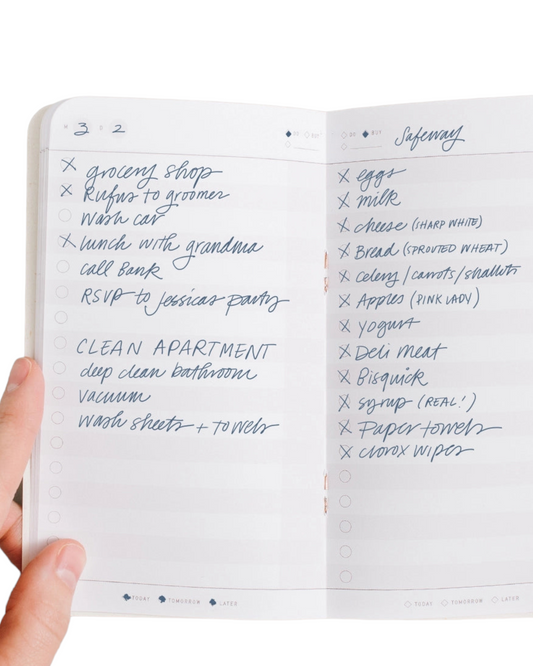 3 2
× grocery shop
× Rufus to groomer
Wash car
× lunch with grandma
call Bank
RSVP to Jessicas party
CLEAN APARTMENT
deep clean bathroom
vacuum
wash sheets + towels
TODAY TOMORROW LATER
DO BUY
Safeway
× eggs
× milk
× cheese (SHARP WHITE)
× Bread (SPROUTED WHEAT)
× celery / carrots / shallots
× Apples (PINK LADY)
× Yogurt
× Deli meat
× Bisquick
× syrup (REAL!)
× Paper towels
× clorox wipes
TODAY TOMORROW LATER